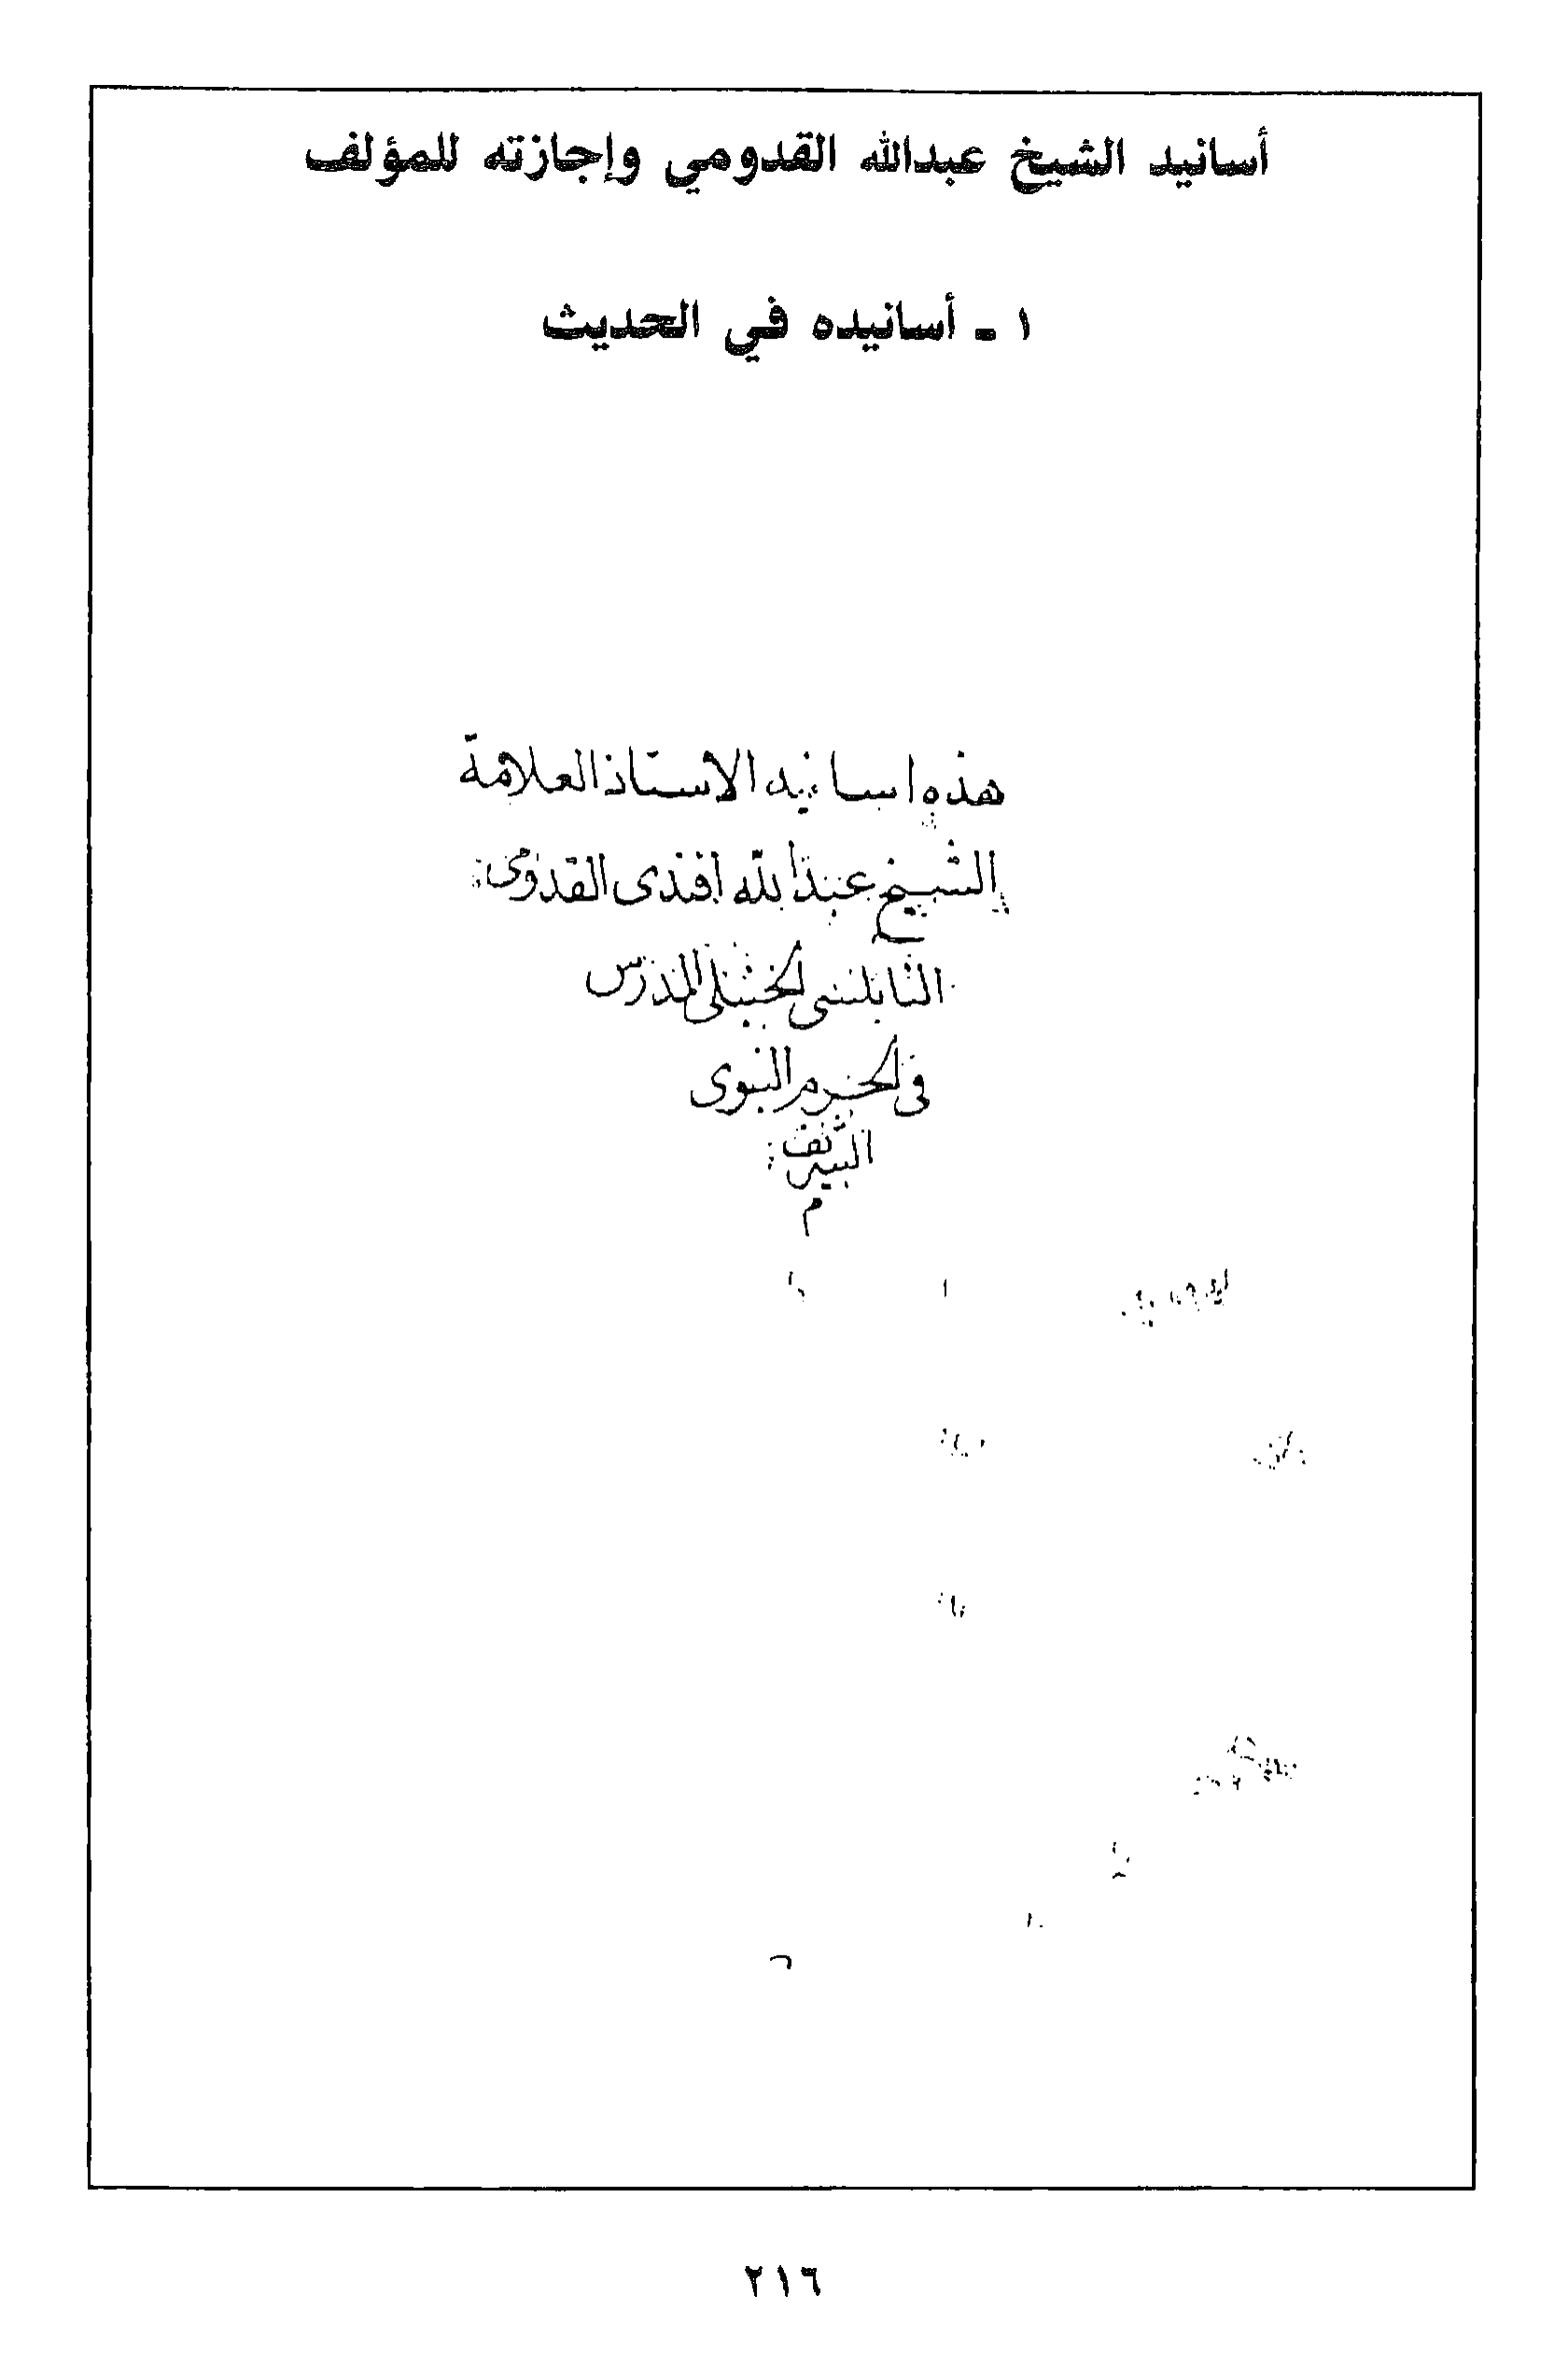 أسانيد الشيخ عبدالله القدومي وإجازته للمؤلف
١ - أسانيده في الحديث
هذه اسانيد الاستاذ العلامة
الشيخ عبد الله افندى القدومى
النابلسى الحنبلى المدرس
فى الحرم النبوى
الشريف
م
٢١٦